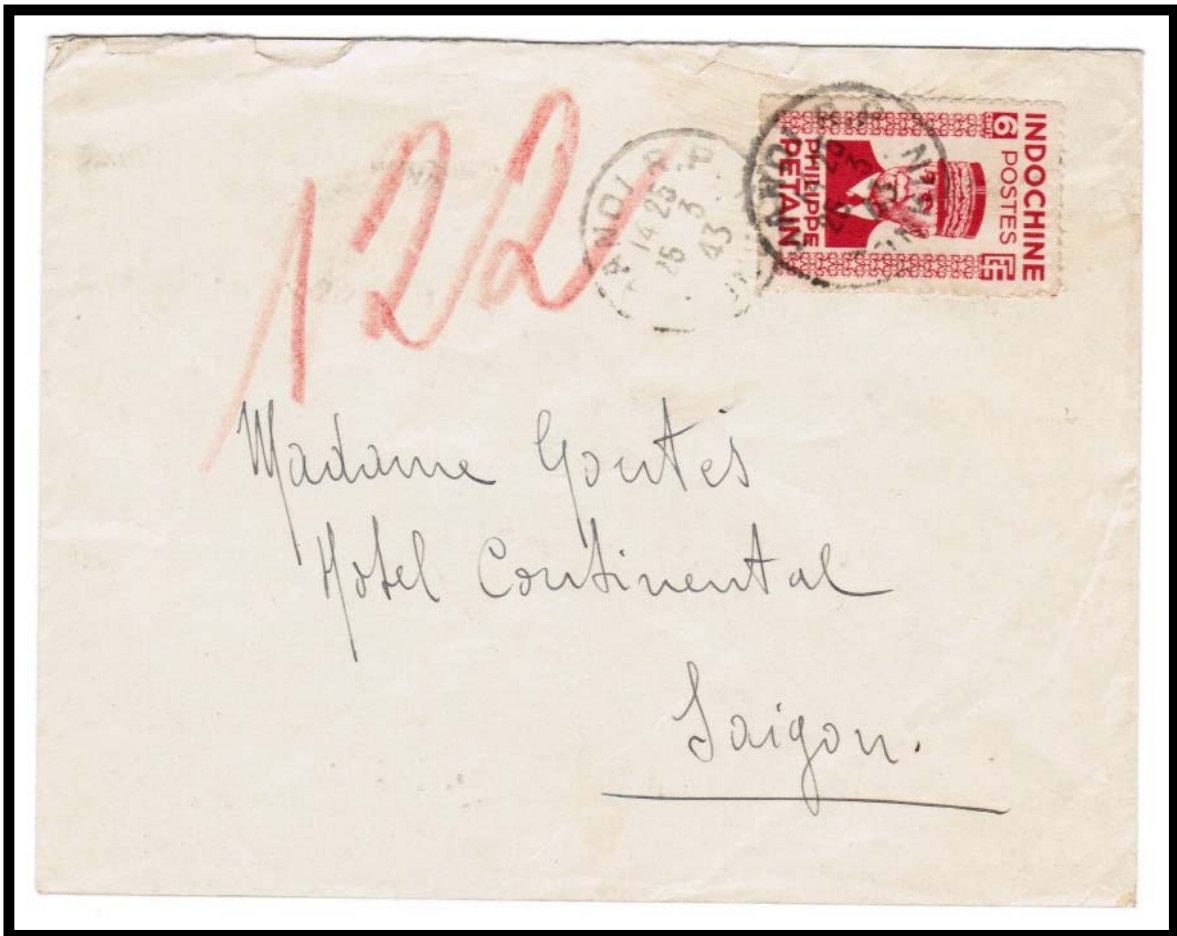 122
HANOI R.P
14 25
25 3
43
INDOCHINE
6 POSTES EF
PHILIPPE
PETAIN
Madame Goutès
Hotel Continental
Saigon.